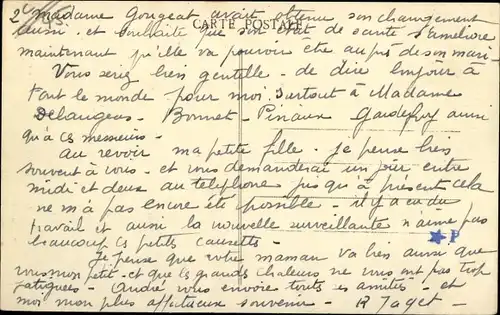 2 Madame Gougeat avait obtenu son changement
CARTE POSTALE
aussi - et souhaite que son état de santé s'améliore
maintenant qu'elle va pouvoir être auprès de son mari -
Vous seriez bien gentille - de dire bonjour à
tout le monde pour moi. Surtout à Madame
Delangeus - Bonnet - Pinaux Gaudefroy aussi
qu'à ces messieurs -
Au revoir ma petite fille - je pense bien
souvent à vous - et vous demanderai un jour entre
midi et deux au téléphone jusqu'à présent cela
ne m'a pas encore été possible - il y a eu du
travail et aussi la nouvelle surveillante n'aime pas
beaucoup ces petits causettes -
Je pense que votre maman va bien ainsi que
vous mon petit - et que ces grands chaleurs ne vous ont pas trop
fatiguées - André vous envoie toutes ses amitiés - et
moi mon plus affectueux souvenir - R Jaget -
P